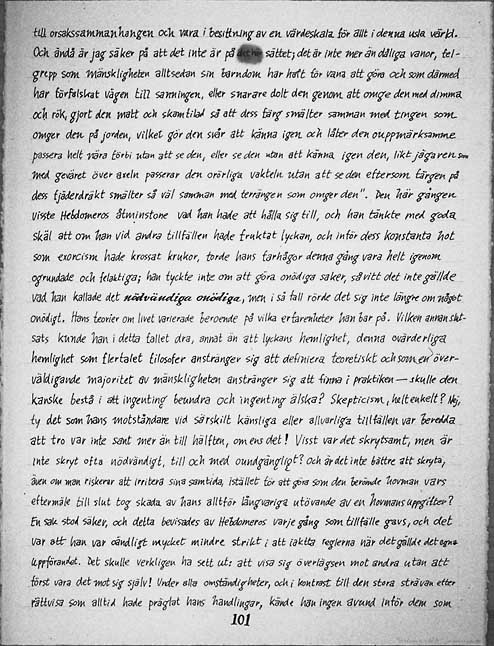 till orsakssammanhangen och vara i besittning av en värdeskala för allt i denna usla värld.
Och ändå är jag säker på att det inte är på sättet; det är inte mer än dåliga vanor, fel-
grepp som mänskligheten alltsedan sin barndom har haft för vana att göra och som därmed
har förfalskat vägen till sanningen, eller snarare dolt den genom att omge den med dimma
och rök, gjort den matt och skamfilad så att dess färg smälter samman med tingen som
omger den på jorden, vilket gör den svår att känna igen och låter den ouppmärksamme
passera helt nära förbi utan att se den, eller se den utan att känna igen den, likt jägaren som
med geväret över axeln passerar den orörliga vakteln utan att se den eftersom färgen på
dess fjäderdräkt smälter så väl samman med terrängen som omger den". Den här gången
visste Hebdomeros åtminstone vad han hade att hålla sig till, och han tänkte med goda
skäl att om han vid andra tillfällen hade fruktat lyckan, och inför dess konstanta hot
som exorcism hade krossat krukor, torde hans farhågor denna gång vara helt igenom
ogrundade och felaktiga; han tyckte inte om att göra onödiga saker, såvitt det inte gällde
vad han kallade det nödvändiga onödiga, men i så fall rörde det sig inte längre om något
onödigt. Hans teorier om livet varierade beroende på vilka erfarenheter han bar på. Vilken annan slut-
sats kunde han i detta fallet dra, annat än att lyckans hemlighet, denna ovärderliga
hemlighet som flertalet filosofer anstränger sig att definiera teoretiskt och som en över-
väldigande majoritet av mänskligheten anstränger sig att finna i praktiken — skulle den
kanske bestå i att ingenting beundra och ingenting älska? Skepticism, helt enkelt? Nej,
ty det som hans motståndare vid särskilt känsliga eller allvarliga tillfällen var beredda
att tro var inte sant mer än till hälften, om ens det! Visst var det skrytsamt, men är
inte skryt ofta nödvändigt, till och med oundgängligt? Och är det inte bättre att skryta,
även om man riskerar att irritera sina samtida, istället för att göra som den berömde hovman vars
eftermäle till slut tog skada av hans alltför långvariga utövande av en hovmans uppgifter?
En sak stod säker, och detta bevisades av Hebdomeros varje gång som tillfälle gavs, och det
var att han var oändligt mycket mindre strikt i att iaktta reglerna när det gällde det egna
uppförandet. Det skulle verkligen ha sett ut: att visa sig överlägsen mot andra utan att
först vara det mot sig själv! Under alla omständigheter, och i kontrast till den stora strävan efter
rättvisa som alltid hade präglat hans handlingar, kände han ingen avund inför dem som
101